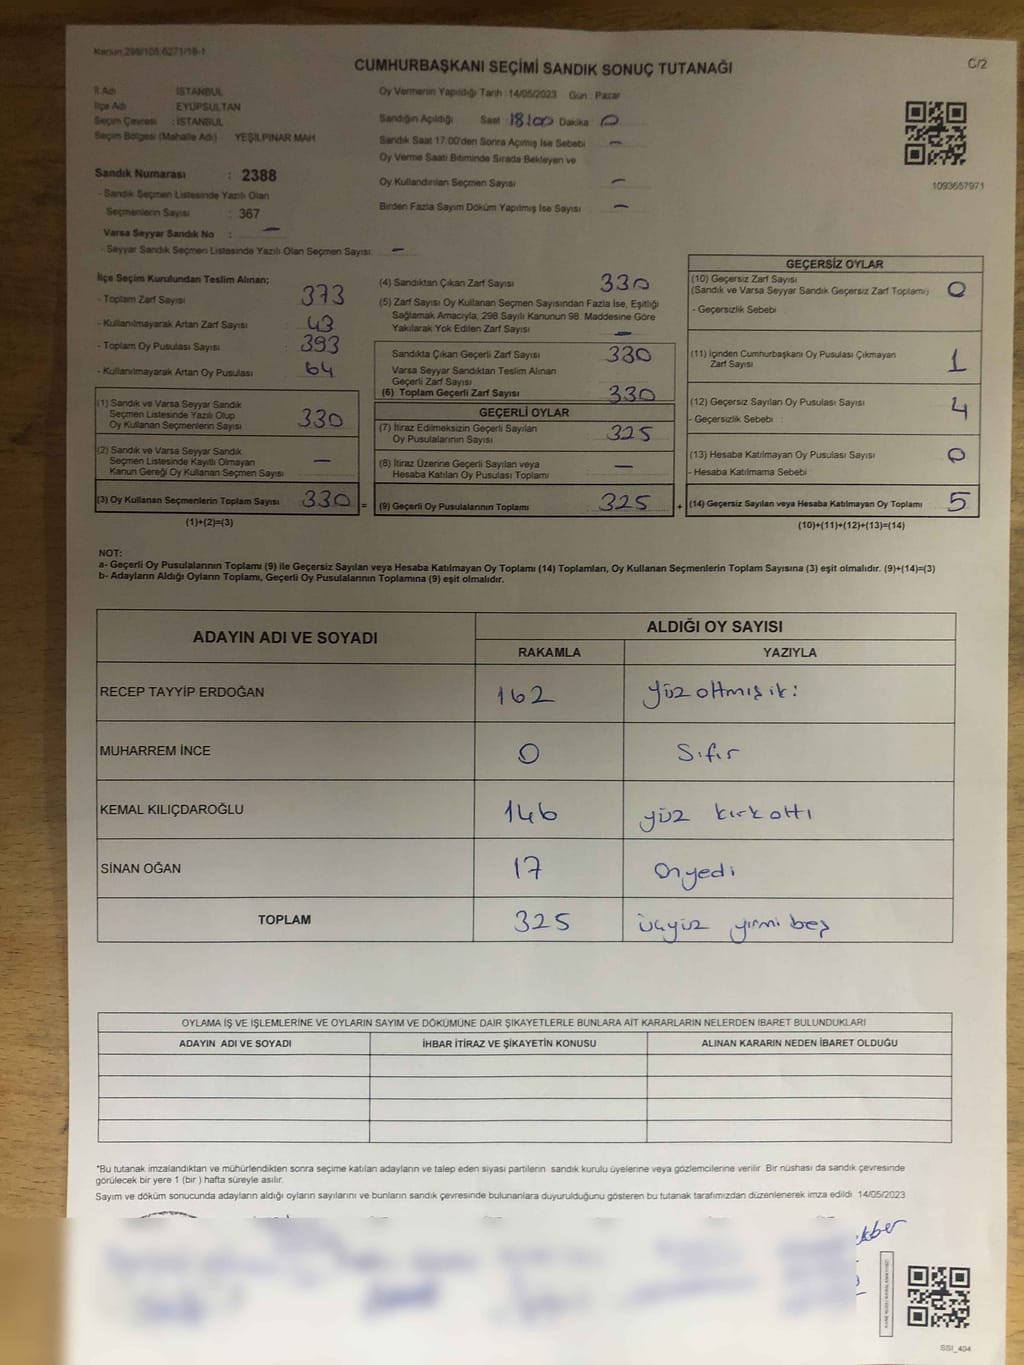 Kanun:298/105;6271/18-1
CUMHURBAŞKANI SEÇİMİ SANDIK SONUÇ TUTANAĞI
C/2
İl Adı İSTANBUL
İlçe Adı EYÜPSULTAN
Seçim Çevresi : İSTANBUL
Seçim Bölgesi (Mahalle Adı) YEŞİLPINAR MAH.
Sandık Numarası : 2388
- Sandık Seçmen Listesinde Yazılı Olan
Seçmenlerin Sayısı : 367
Varsa Seyyar Sandık No : —
- Seyyar Sandık Seçmen Listesinde Yazılı Olan Seçmen Sayısı: —
Oy Vermenin Yapıldığı Tarih : 14/05/2023 Gün : Pazar
Sandığın Açıldığı Saat 18:00 Dakika 0
Sandık Saat 17.00'den Sonra Açımış İse Sebebi —
Oy Verme Saati Bitiminde Sırada Bekleyen ve
Oy Kullandırılan Seçmen Sayısı —
Birden Fazla Sayım Döküm Yapılmış İse Sayısı —
1093657971
İlçe Seçim Kurulundan Teslim Alınan;
- Toplam Zarf Sayısı : 373
- Kullanılmayarak Artan Zarf Sayısı : 43
- Toplam Oy Pusulası Sayısı : 393
- Kullanılmayarak Artan Oy Pusulası : 64
(1) Sandık ve Varsa Seyyar Sandık
Seçmen Listesinde Yazılı Olup
Oy Kullanan Seçmenlerin Sayısı 330
(2) Sandık ve Varsa Seyyar Sandık
Seçmen Listesinde Kayıtlı Olmayan
Kanun Gereği Oy Kullanan Seçmen Sayısı —
(3) Oy Kullanan Seçmenlerin Toplam Sayısı 330 =
(1)+(2)=(3)
(4) Sandıktan Çıkan Zarf Sayısı 330
(5) Zarf Sayısı Oy Kullanan Seçmen Sayısından Fazla İse, Eşitliği
Sağlamak Amacıyla, 298 Sayılı Kanunun 98. Maddesine Göre
Yakılarak Yok Edilen Zarf Sayısı —
Sandıkta Çıkan Geçerli Zarf Sayısı 330
Varsa Seyyar Sandıktan Teslim Alınan
Geçerli Zarf Sayısı
(6) Toplam Geçerli Zarf Sayısı 330
GEÇERLİ OYLAR
(7) İtiraz Edilmeksizin Geçerli Sayılan
Oy Pusulalarının Sayısı 325
(8) İtiraz Üzerine Geçerli Sayılan veya
Hesaba Katılan Oy Pusulası Toplamı —
(9) Geçerli Oy Pusulalarının Toplamı 325 +
GEÇERSİZ OYLAR
(10) Geçersiz Zarf Sayısı
(Sandık ve Varsa Seyyar Sandık Geçersiz Zarf Toplamı) 0
- Geçersizlik Sebebi
(11) İçinden Cumhurbaşkanı Oy Pusulası Çıkmayan
Zarf Sayısı 1
(12) Geçersiz Sayılan Oy Pusulası Sayısı 4
- Geçersizlik Sebebi :
(13) Hesaba Katılmayan Oy Pusulası Sayısı 0
- Hesaba Katılmama Sebebi
(14) Geçersiz Sayılan veya Hesaba Katılmayan Oy Toplamı 5
(10)+(11)+(12)+(13)=(14)
NOT:
a- Geçerli Oy Pusulalarının Toplamı (9) ile Geçersiz Sayılan veya Hesaba Katılmayan Oy Toplamı (14) Toplamları, Oy Kullanan Seçmenlerin Toplam Sayısına (3) eşit olmalıdır. (9)+(14)=(3)
b- Adayların Aldığı Oyların Toplamı, Geçerli Oy Pusulalarının Toplamına (9) eşit olmalıdır.
ADAYIN ADI VE SOYADI ALDIĞI OY SAYISI
RAKAMLA YAZIYLA
RECEP TAYYİP ERDOĞAN 162 yüz altmış iki
MUHARREM İNCE 0 Sıfır
KEMAL KILIÇDAROĞLU 146 yüz kırk altı
SİNAN OĞAN 17 Onyedi
TOPLAM 325 üçyüz yirmi beş
OYLAMA İŞ VE İŞLEMLERİNE VE OYLARIN SAYIM VE DÖKÜMÜNE DAİR ŞİKAYETLERLE BUNLARA AİT KARARLARIN NELERDEN İBARET BULUNDUKLARI
ADAYIN ADI VE SOYADI İHBAR İTİRAZ VE ŞİKAYETİN KONUSU ALINAN KARARIN NEDEN İBARET OLDUĞU
*Bu tutanak imzalandıktan ve mühürlendikten sonra seçime katılan adayların ve talep eden siyasi partilerin sandık kurulu üyelerine veya gözlemcilerine verilir. Bir nüshası da sandık çevresinde
görülecek bir yere 1 (bir ) hafta süreyle asılır.
Sayım ve döküm sonucunda adayların aldığı oyların sayılarını ve bunların sandık çevresinde bulunanlara duyurulduğunu gösteren bu tutanak tarafımızdan düzenlenerek imza edildi. 14/05/2023
SSI_404